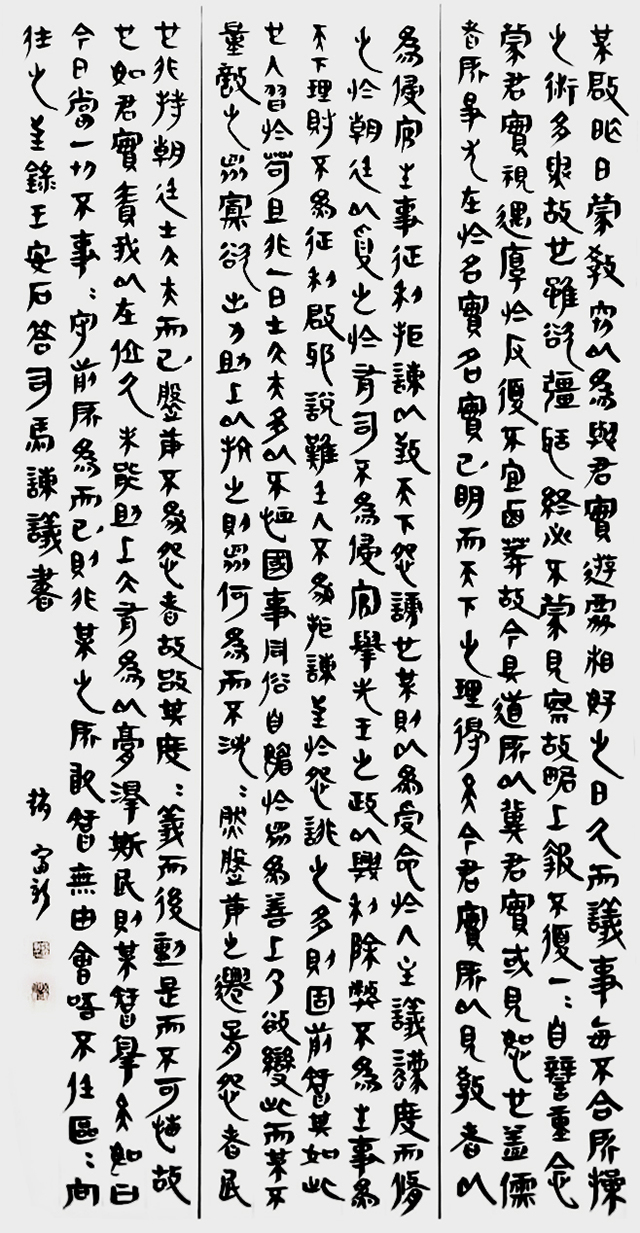 某啟昨日蒙教竊以為與君實遊處相好之日久而議事每不合所操
之術多異故也雖欲彊聒終必不蒙見察故略上報不復一=自辯重念
蒙君實視遇厚於反復不宜鹵莽故今具道所以冀君實或見恕也蓋儒
者所爭尤在於名實名實已明而天下之理得矣今君實所以見教者以
為侵官生事征利拒諫以致天下怨謗也某則以為受命於人主議灋度而脩
之於朝廷以受之於有司不為侵官舉先王之政以興利除弊不為生事為
天下理財不為征利辟邪說難壬人不為拒諫至於怨誹之多則固前智其如此
也人習於苟且非一日士大夫多以不恤國事同俗自媚於眾為善上乃欲變此而某不
量敵之眾寡欲出力助上以抗之則眾何為而不洶=然盤庚之遷胥怨者民
也非特朝廷士大夫而已盤庚不為怨者故改其度=義而後動是而不可悔故
也如君實責我以在位久未能助上大有為以膏澤斯民則某智辠矣如曰
今日當一切不事=守前所為而已則非某之所敢智無由會晤不任區=向
往之至錄王安石答司馬諫議書